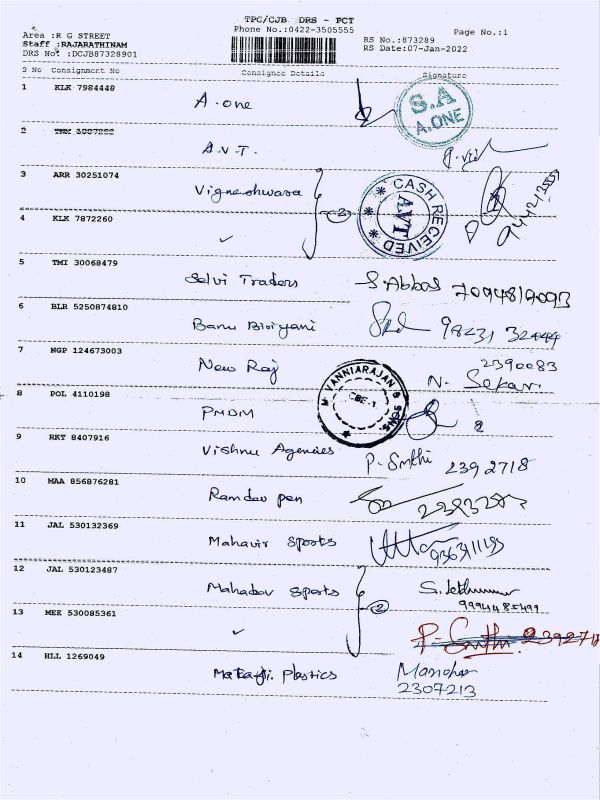 TPC/CJB DRS - PCT
Phone No.:0422-3505555
Page No.:1
Area :R G STREET
Staff :RAJARATHINAM
DRS No. :DCJB87328901
RS No.:873289
RS Date:07-Jan-2022
S No Consignment No Consignee Details Signature
1 KLK 7984448 A. one
S.A
A.ONE
2
A.V.T.
3 ARR 30251074 Vigneshwara
2
CASH RECEIVED
AVT
4 KLK 7872260 ✓
5 TMI 30068479 Selvi Traders S. Abbas
6 BLR 5250874810 Banu Biriyani
7 NGP 124673003 New Raj 2390083
N. Sekar
M. VANNIARAJAN & SONS.
CBE-1
8 POL 4110198 PMDM
9 RKT 8407916 Vishnu Agencies P. Smthi 2392718
10 MAA 856876281 Ramdev pen
11 JAL 530132369 Mahavir sports
12 JAL 530123487 Mahadev sports
2
13 MEE 530085361 ✓ P. Smthi 2392718
14 HLL 1269049 Mataji. plastics Manohar
2307213